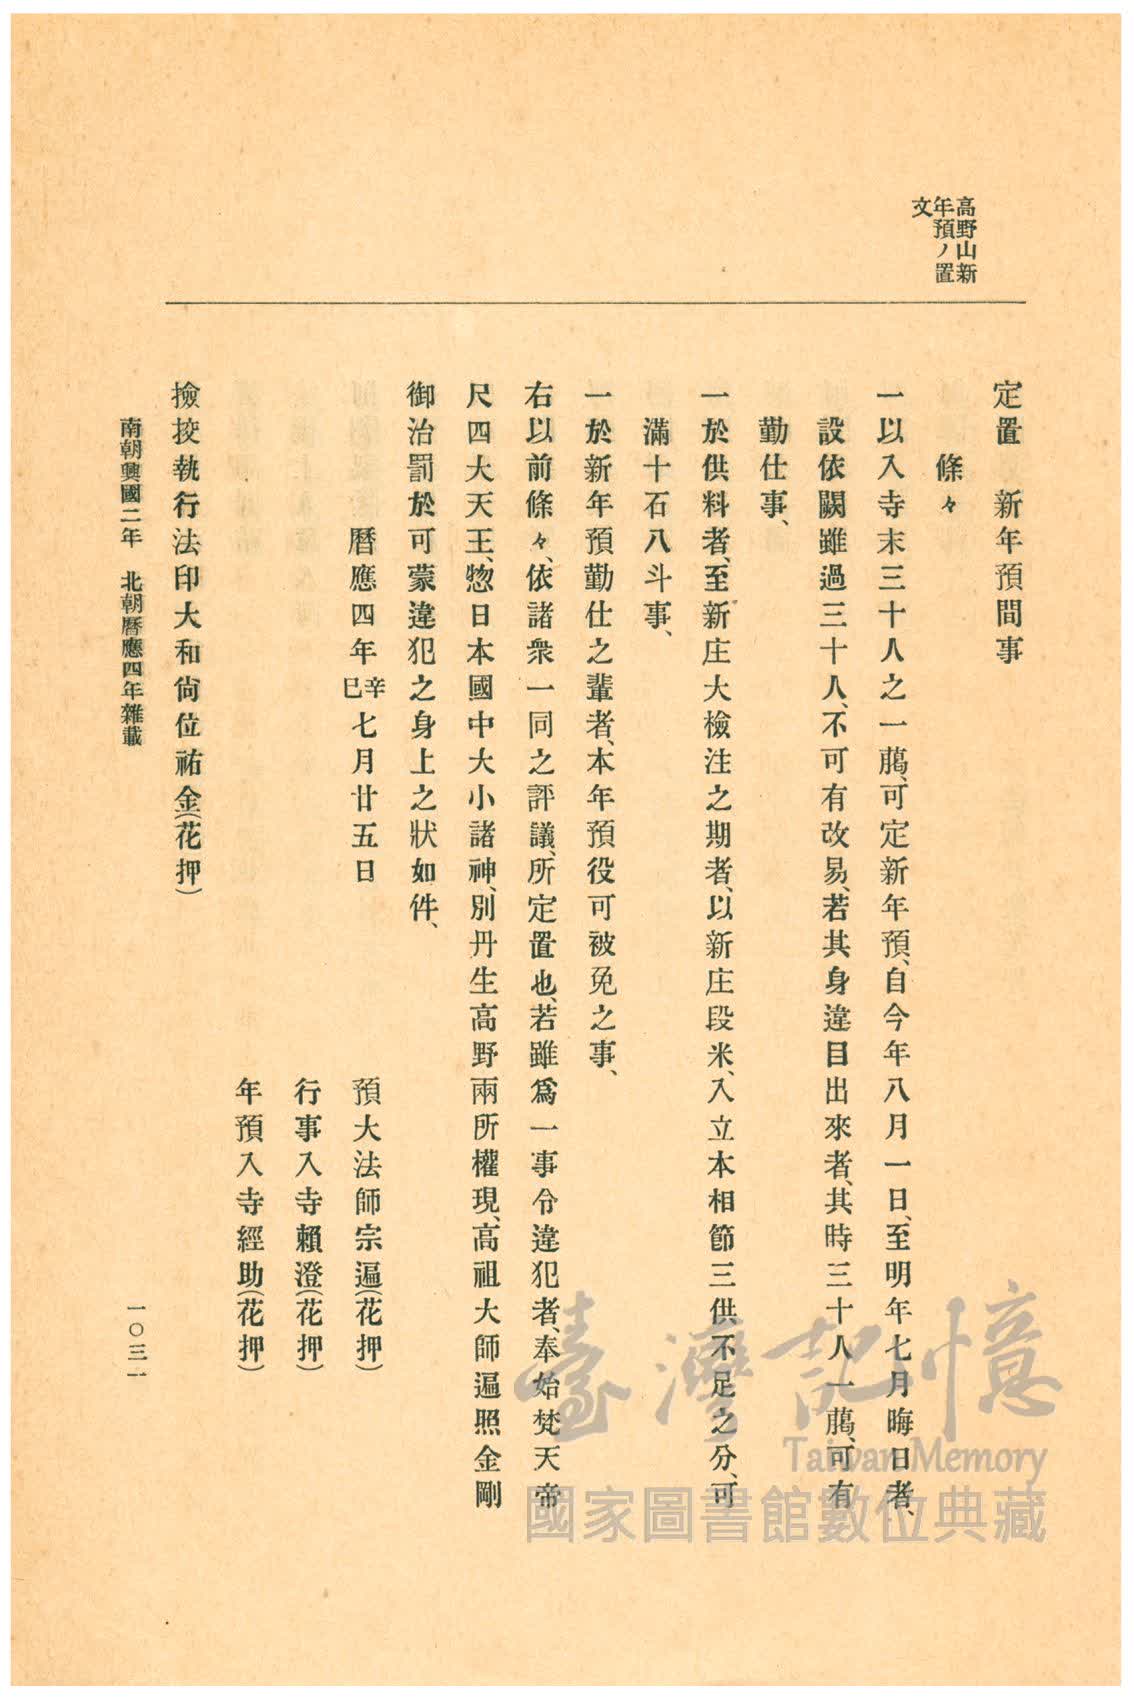 高野山新
年預ノ置
文
定置　新年預間事
條々
一以入寺末三十人之一﨟、可定新年預、自今年八月一日、至明年七月晦日者、
設依闕雖過三十人、不可有改易、若其身違目出來者、其時三十人一﨟、可有
勤仕事、
一於供料者、至新庄大檢注之期者、以新庄段米、入立本相節三供不足之分、可
滿十石八斗事、
一於新年預勤仕之輩者、本年預役可被免之事、
右以前條々、依諸衆一同之評議、所定置也、若雖爲一事令違犯者、奉始梵天帝
尺四大天王、惣日本國中大小諸神、別丹生高野兩所權現、高祖大師遍照金剛
御治罰於可蒙違犯之身上之狀如件、
曆應四年辛巳七月廿五日
預大法師宗遍(花押)
行事入寺賴澄(花押)
年預入寺經助(花押)
撿挍執行法印大和尙位祐金(花押)
南朝興國二年　北朝曆應四年雜載
一〇三一
臺灣記憶
Taiwan Memory
國家圖書館數位典藏